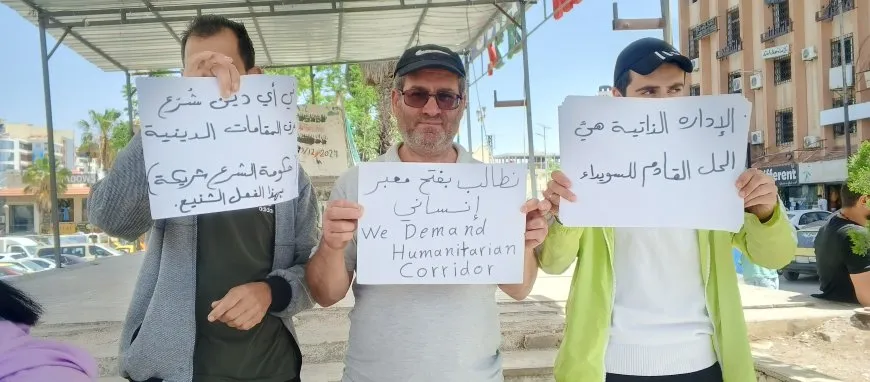 أي دين شُرّع
المقامات الدينية
حكومة الشرع شريكة)
بهذا الفعل الشنيع.
نطالب بفتح معبر
إنساني
We Demand
Humanitarian
Corridor
الإداره الذاتية هيَ
الحل القادم للسويداء
12/2024
fferent